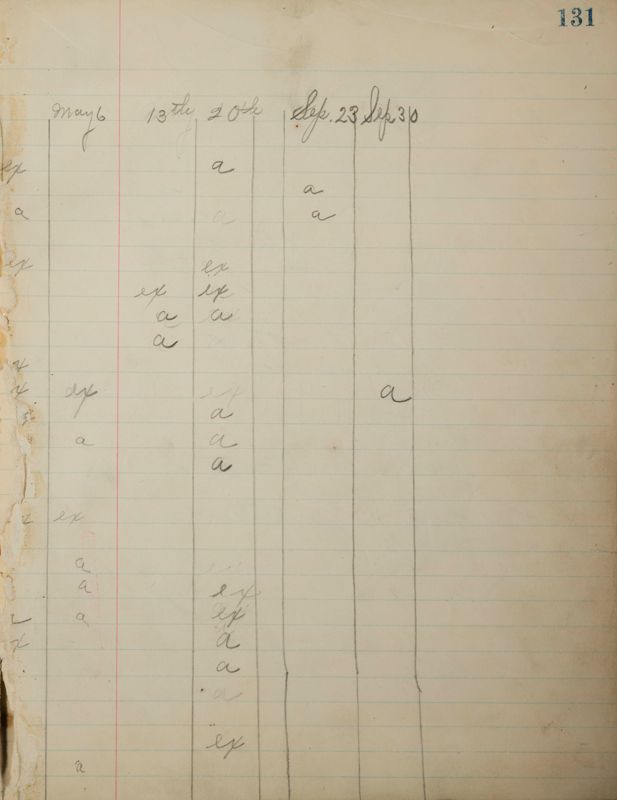 131
May 6 13th 20th Sep. 23 Sep 30
ex a
a
a a a
ex ex
ex ex
a a
a
x
x ex ex a
a
a a
a
ex
a
a ex
a ex
x a
a
a
ex
a